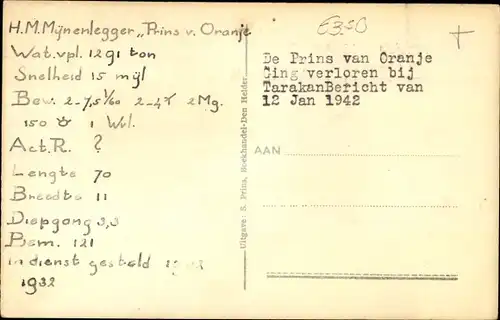 H.M. Mijnenlegger „Prins v. Oranje
Wat.vpl. 1291 ton
Snelheid 15 mijl
Bew. 2-7,5 1/60 2-4 2 Mg.
150 1 Wvl.
Act.R. ?
Lengte 70
Breedte 11
Diepgang 3,3
Bem. 121
in dienst gesteld 1932
1932
Uitgave: S. Prins, Boekhandel-Den Helder
6350
De Prins van Oranje
Ging verloren bij
TarakanBericht van
12 Jan 1942
AAN